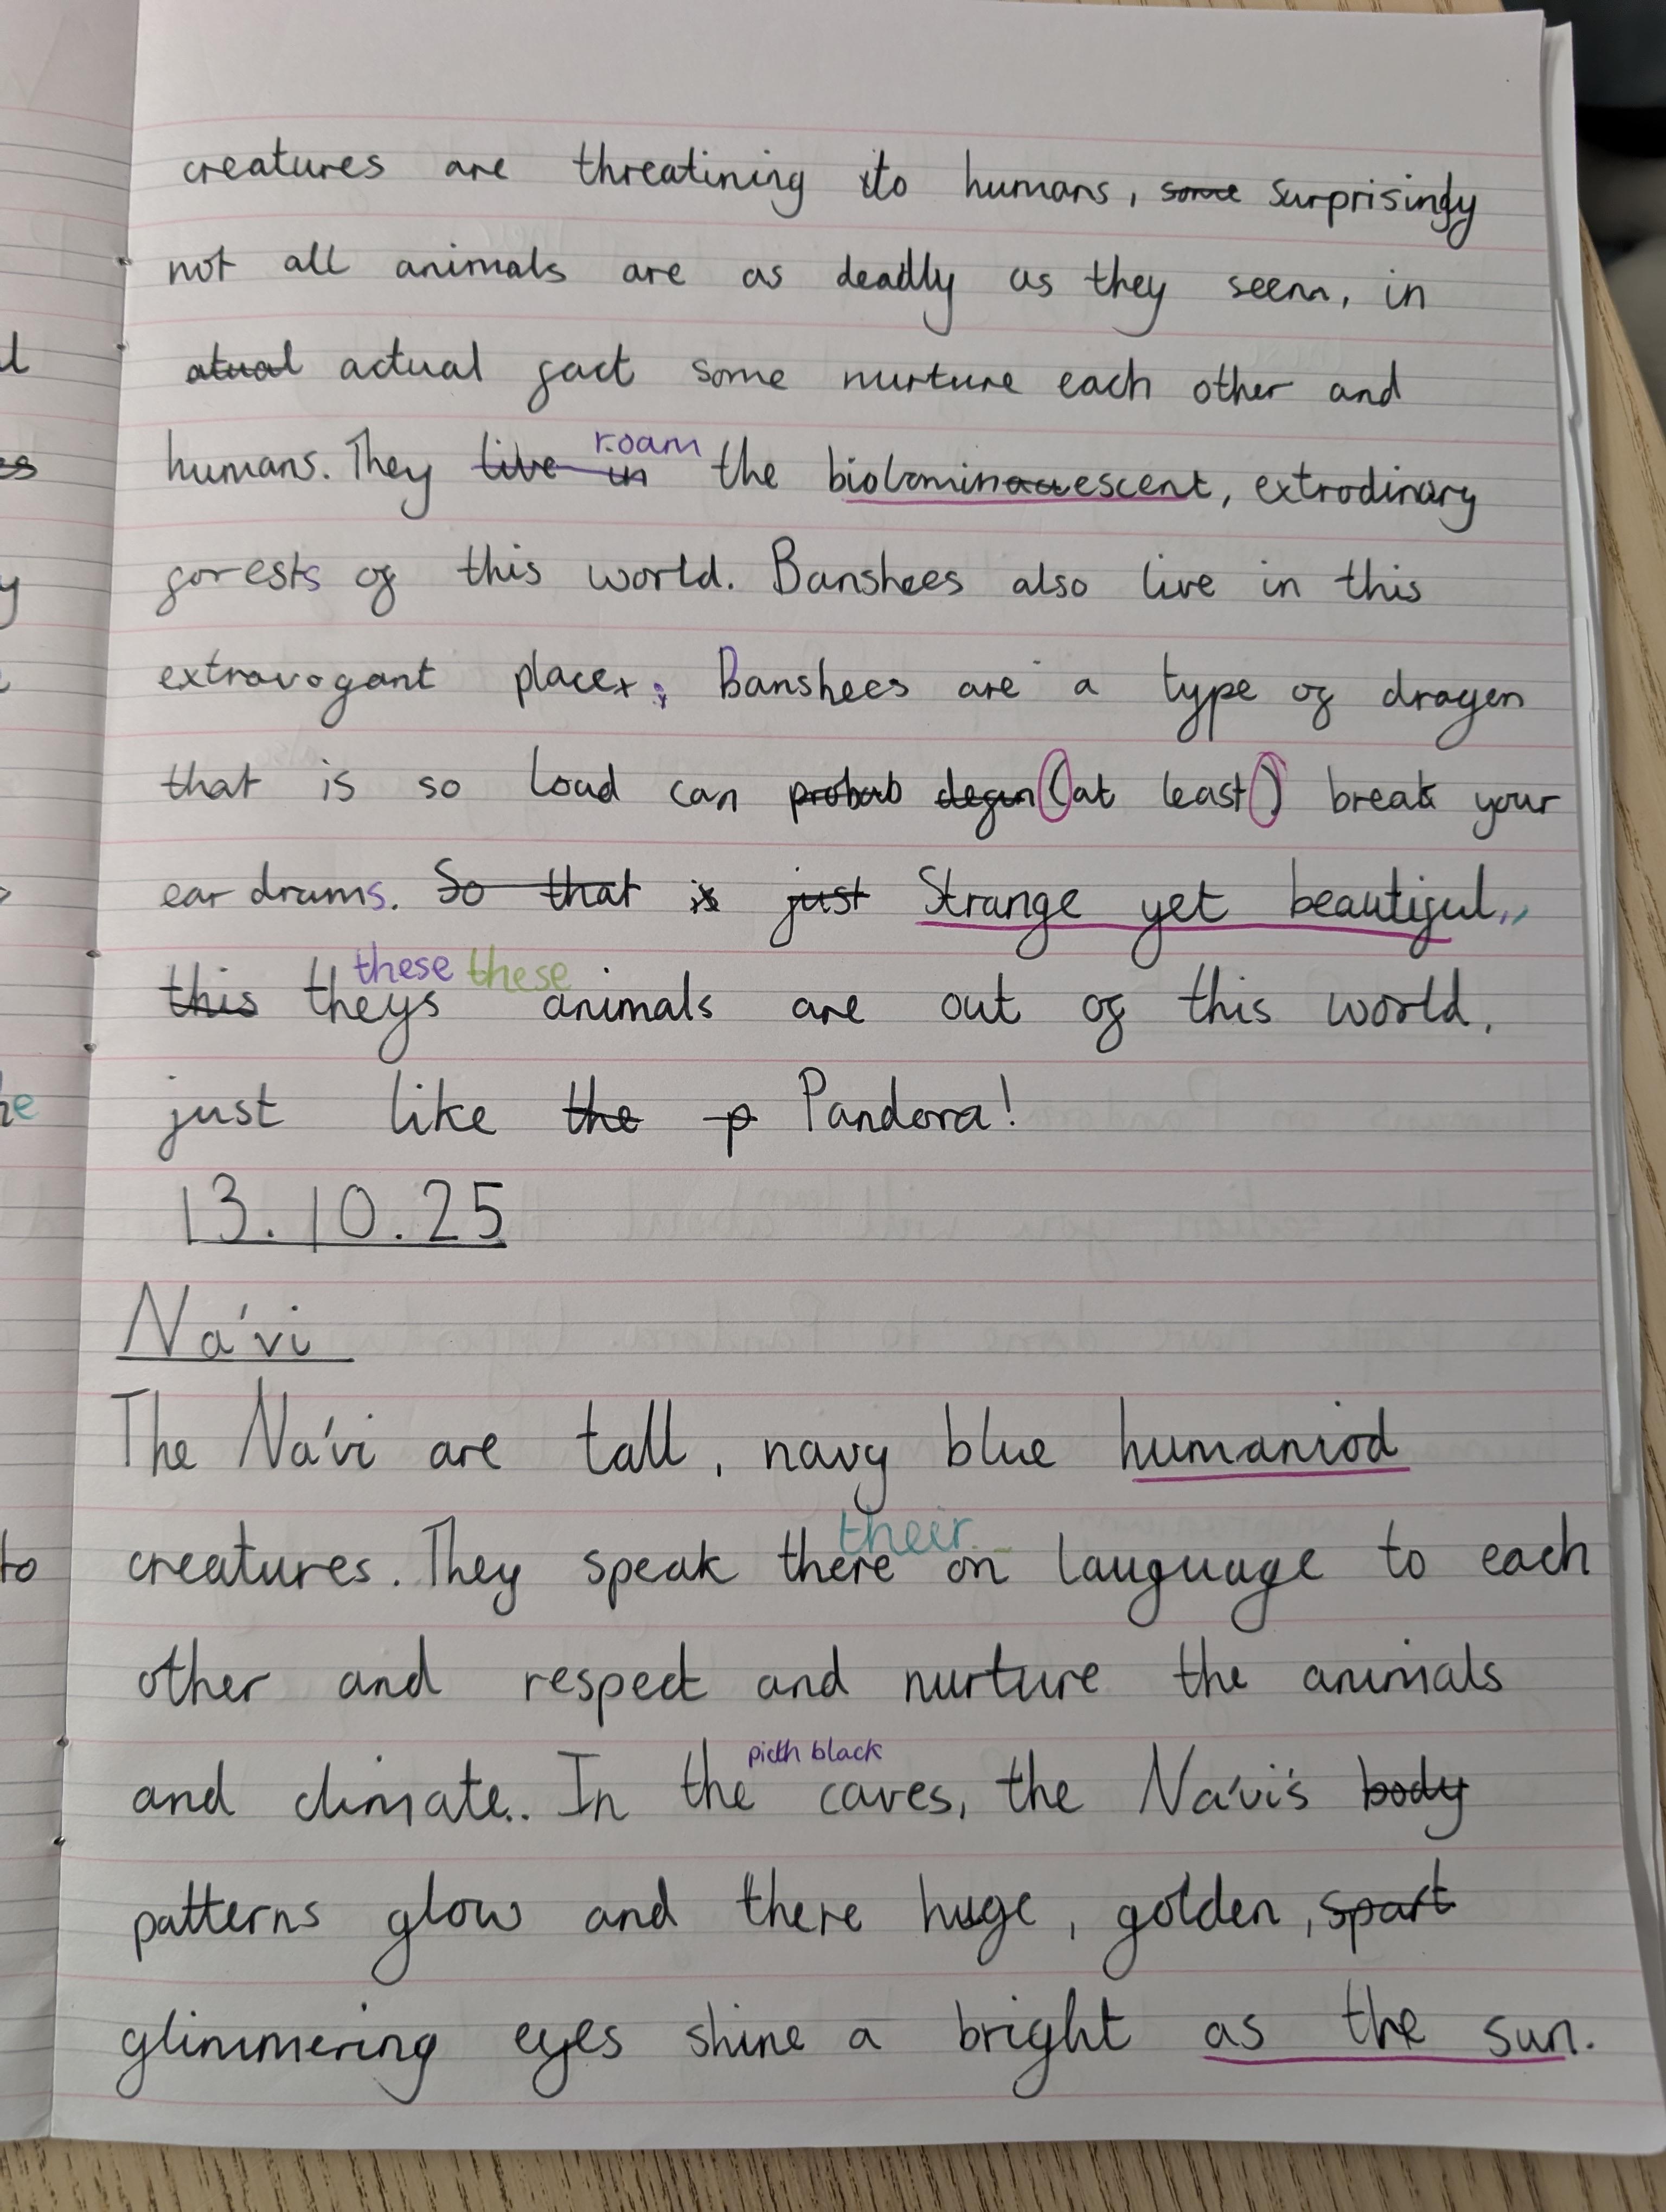 creatures are threatining to humans, some surprisingly
not all animals are as deadly as they seem, in
atual actual fact some nurture each other and
roam
humans. They live in the biolominescent, extrodinary
forests of this world. Banshees also live in this
extravogant place; Banshees are a type of dragen
that is so loud can probab degen (at least) break your
ear drums. So that is just Strange yet beautiful,
these these
this theys animals are out of this world.
just like the p Pandora!
13.10.25
Na'vi
The Na'vi are tall, navy blue humaniod
their
creatures. They speak there on lauguage to each
other and respect and nurture the animals
pich black
and climate. In the caves, the Na'vi's body
patterns glow and there huge, golden, spart
glimmering eyes shine a bright as the sun.
he
to